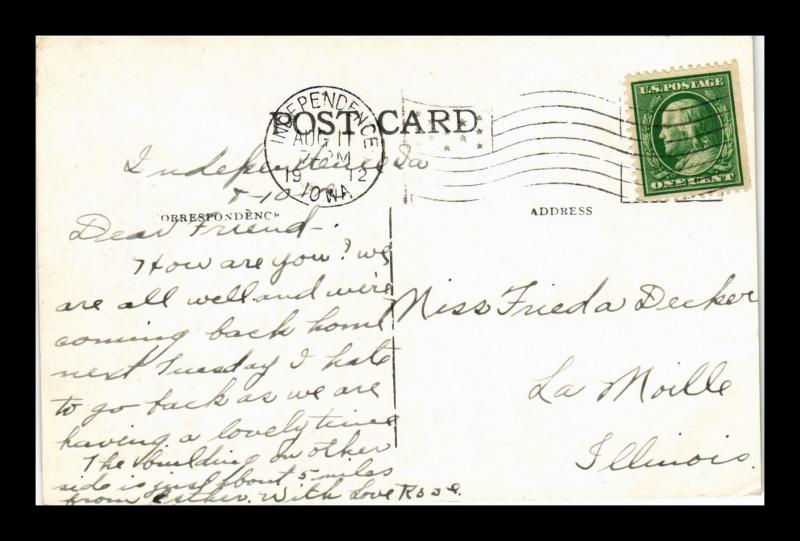 U.S. POSTAGE
ONE CENT
INDEPENDENCE
AUG 11
19 12
IOWA
POST CARD
Independence Ia
8-10
ORRESPONDENCE
ADDRESS
Dear Friend-.
How are you? we
are all well and we're
coming back home
next Tuesday I hate
to go back as we are
having a lovely time
The building on other
side is just about 5 miles
from Esther. With Love Rose.
Miss Frieda Decker
La Moille
Illinois.